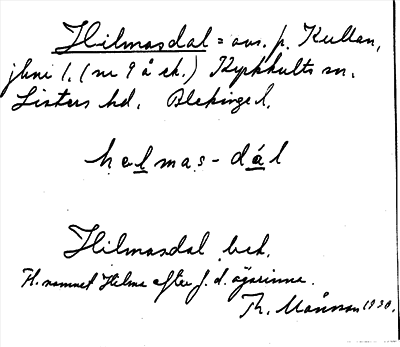 Hilmasdal = avs. p. Kullan,
jbni 1. (nr 9 å ek.) Kyrkhults sn.
Listers hd. Blekinge l.
helmas-dál
Hilmasdal bek.
Fl. namnet Hilma efter f. d. ägarinna.
Th. Månsson 1930.